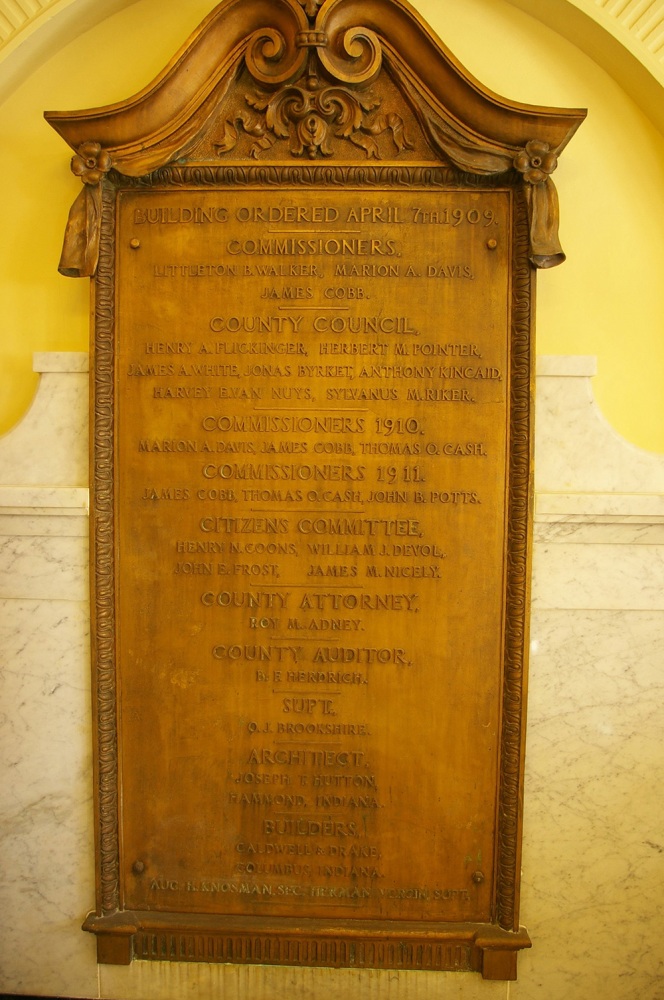 BUILDING ORDERED APRIL 7TH.1909.
COMMISSIONERS,
LITTLETON B.WALKER, MARION A. DAVIS,
JAMES COBB.
COUNTY COUNCIL,
HENRY A. FLICKINGER, HERBERT M. POINTER,
JAMES A.WHITE, JONAS BYRKET, ANTHONY KINCAID,
HARVEY E.VAN NUYS, SYLVANUS M.RIKER.
COMMISSIONERS 1910.
MARION A. DAVIS, JAMES COBB, THOMAS O. CASH.
COMMISSIONERS 1911.
JAMES COBB, THOMAS O. CASH, JOHN B. POTTS.
CITIZENS COMMITTEE,
HENRY N. COONS, WILLIAM J. DEVOL,
JOHN E. FROST, JAMES M. NICELY.
COUNTY ATTORNEY,
ROY M. ADNEY.
COUNTY AUDITOR,
B. F. HERDRICH.
SUPT.
O.J. BROOKSHIRE.
ARCHITECT,
JOSEPH T. HUTTON,
HAMMOND, INDIANA.
BUILDERS,
CALDWELL & DRAKE,
COLUMBUS, INDIANA.
AUG. H. KNOSMAN, SEC. HERMAN SUPT.